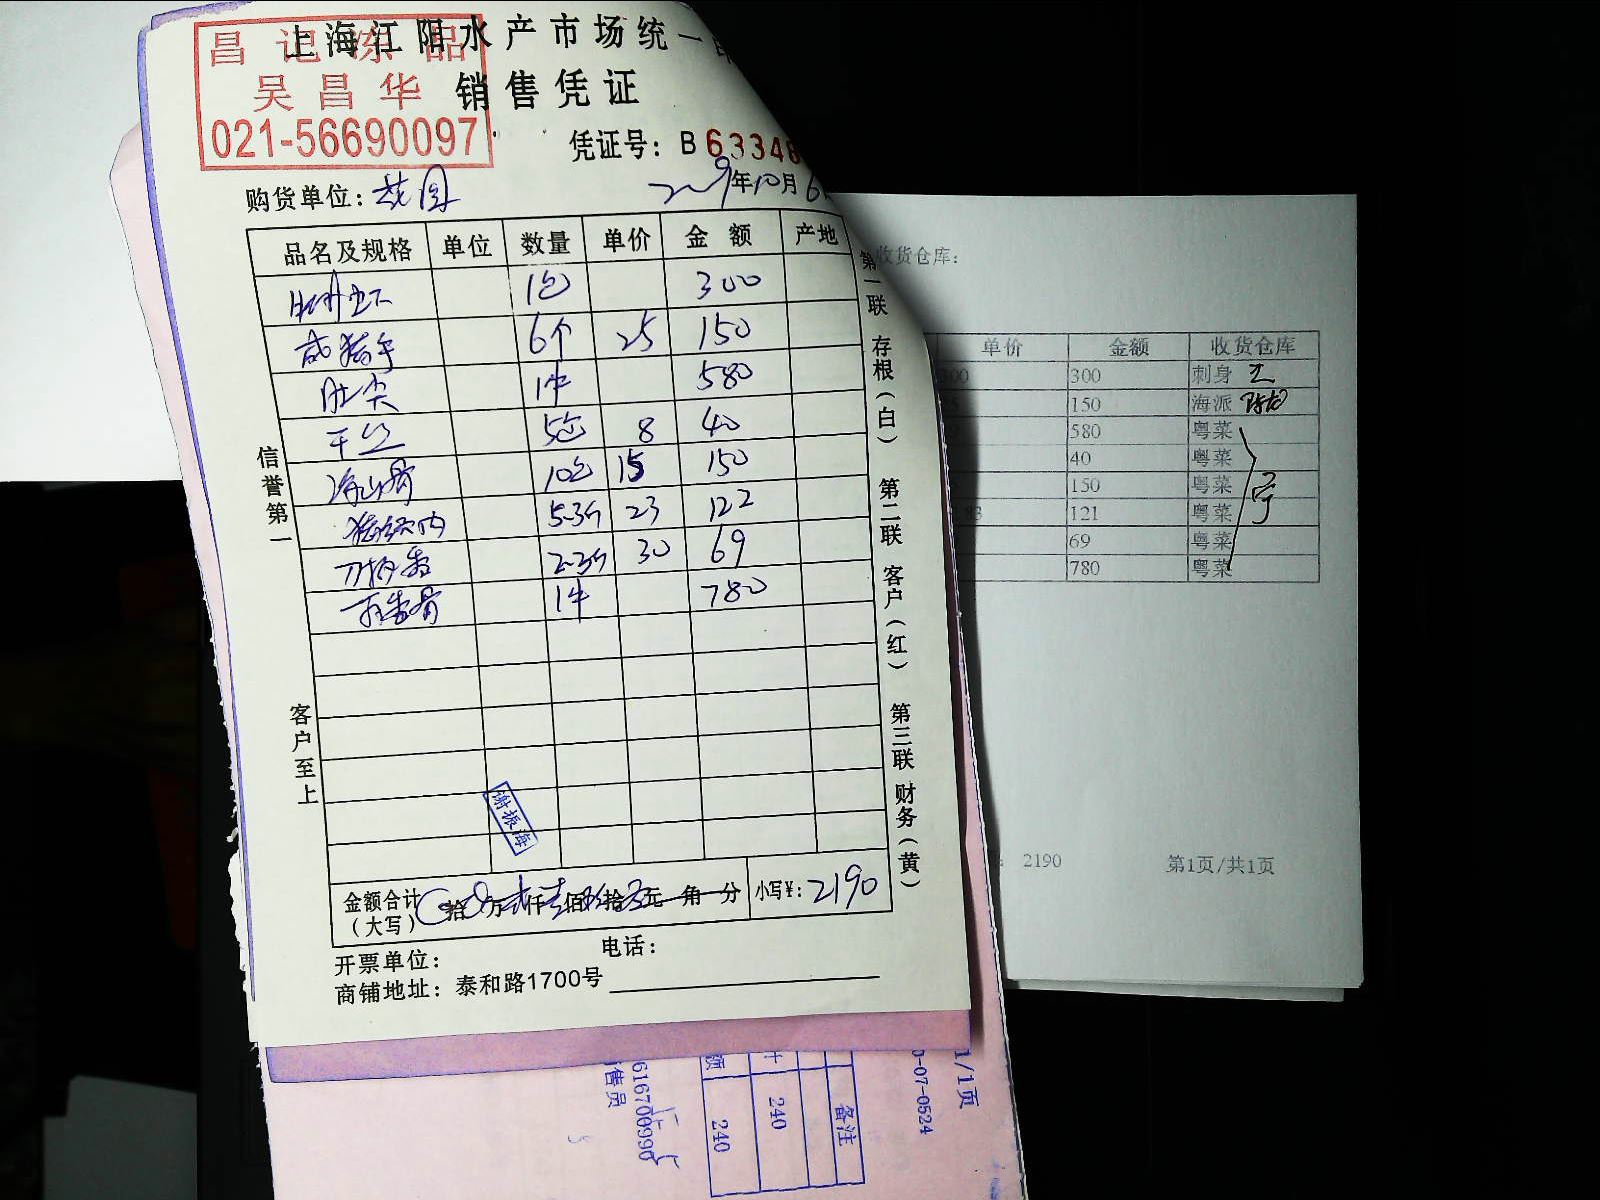 上海江阳水产市场统一
昌记冻品
吴昌华
021-56690097
销售凭证
凭证号：B 63348
购货单位：花园
2009年10月6
品名及规格 单位 数量 单价 金额 产地
1包 300
咸猪手 6个 25 150
肚尖 1件 580
干丝 5包 8 40
10包 15 150
猪颈肉 5.3斤 23 122
2.3斤 30 69
1件 780
信誉第一
客户至上
第一联 存根（白） 第二联 客户（红） 第三联 财务（黄）
谢振海
金额合计（大写） 拾 万 仟 佰 拾 元 角 分 小写¥：2190
开票单位： 电话：
商铺地址：泰和路1700号
收货仓库：
单价 金额 收货仓库
300 300 刺身
150 海派
580 粤菜
40 粤菜
150 粤菜
121 粤菜
69 粤菜
780 粤菜
2190 第1页/共1页
1/1页
0-07-0524
备注
240
240
616700990
售员